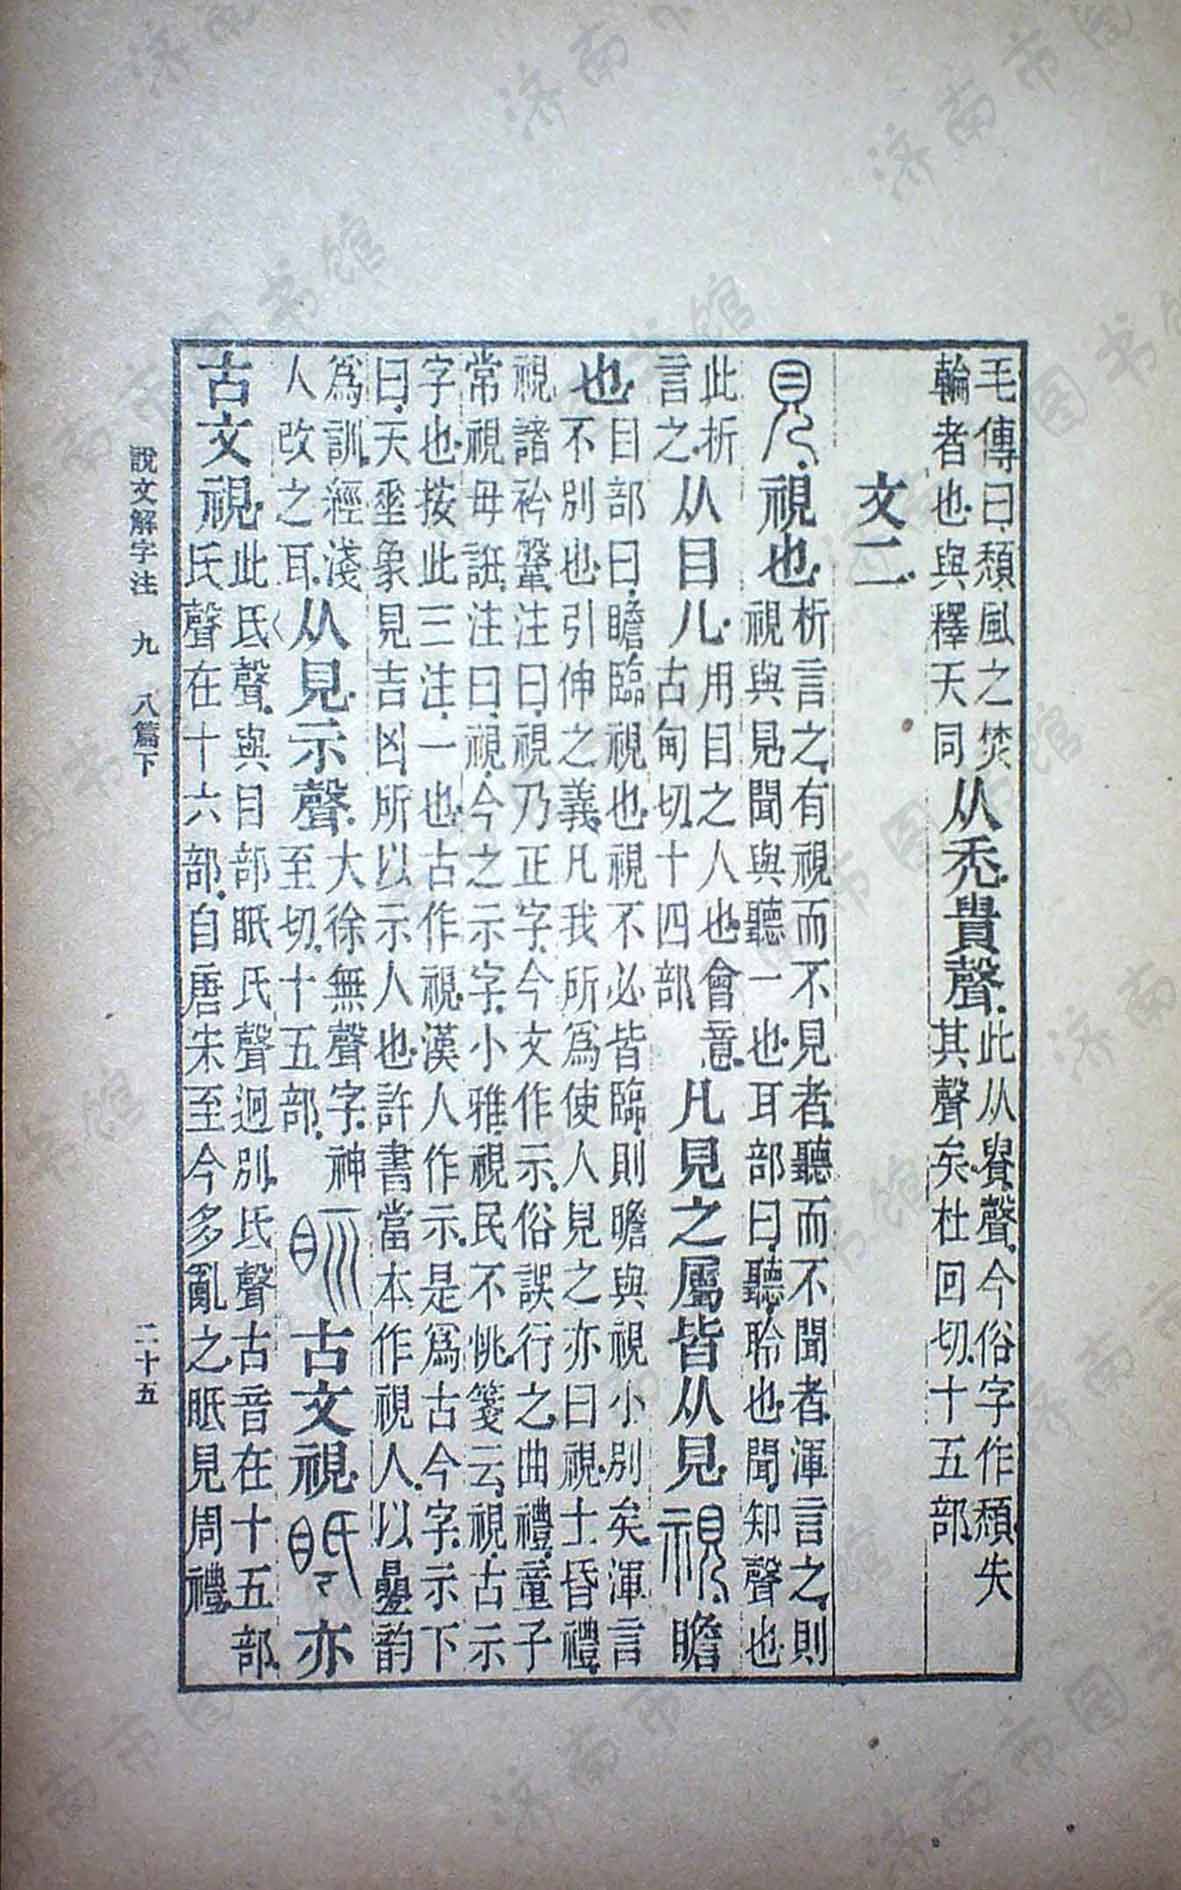 毛傳曰。頹風之焚
輪者也。與釋天同
从禿貴聲。
此从貴聲。今俗字作頹。失
其聲矣。杜回切。十五部。
文二。
見。視也。
析言之。有視而不見者。聽而不聞者。渾言之。則
視與見聞與聽一也。耳部曰。聽。聆也。聞。知聲也。
此析
言之。
从目儿。
用目之人也。會意。
古甸切。十四部。
凡見之屬皆从見。
視。瞻
也。
目部曰。瞻。臨視也。視不必皆臨。則瞻與視小別矣。渾言
不別也。引伸之義。凡我所爲使人見之亦曰視。士昏禮。
視諸衿鞶。注曰。視乃正字。今文作示。俗誤行之。曲禮。童子
常視毋誑。注曰。視。今之示字。小雅。視民不恌。箋云。視。古示
字也。按此三注一也。古作視。漢人作示。是爲古今字。示下
曰。天坙象見吉凶。所以示人也。許書當本作視人。以曡韵
爲訓。經淺
人改之耳。
从見示聲。
大徐無聲字。神
至切。十五部。
古文視。
亦
古文視。
此氐聲。與目部眂氏聲迥別。氐聲古音在十五部。
氏聲在十六部。自唐宋至今多亂之。眡見周禮。
說文解字注 九 八篇下 二十五
济南市图书馆